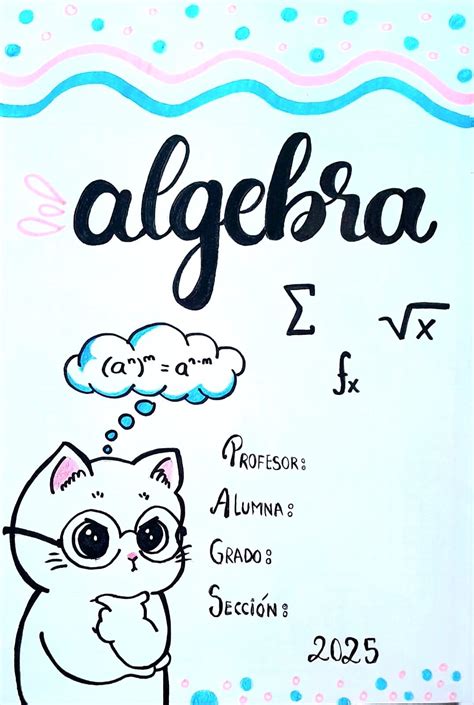 algebra
Σ √x
fx
(aⁿ)ᵐ = aⁿ·ᵐ
PROFESOR:
ALUMNA:
GRADO:
SECCIÓN:
2025